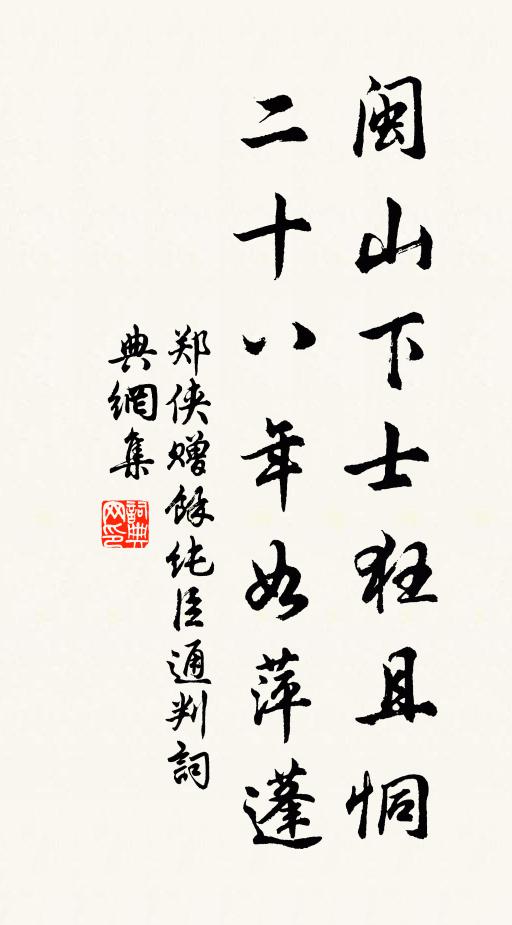 闽山下士狂且恫
二十八年如萍蓬
郑侠赠餘纯臣通判詞
典網集
詞典网印